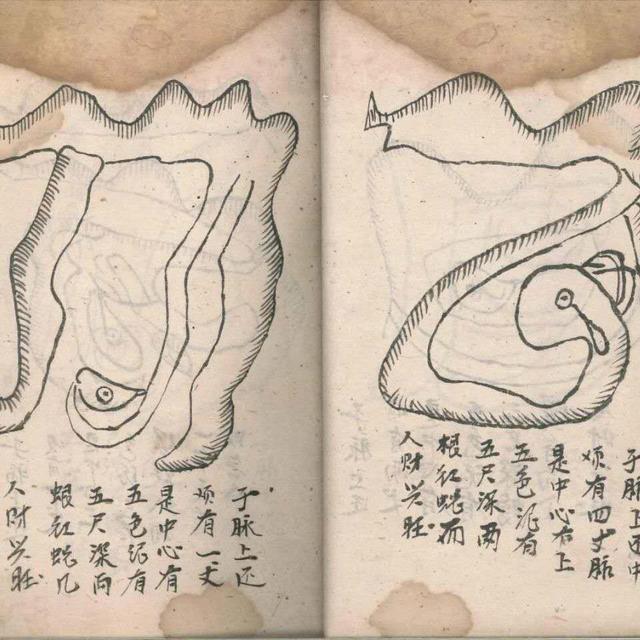 子脉上还中
烦有四丈脈
是中心右上
五色泥有
五尺深两
红蛇而
人财兴旺
子脉上还
烦有一丈
是中心有
五色泥有
五尺深向
红蛇几
人财兴旺